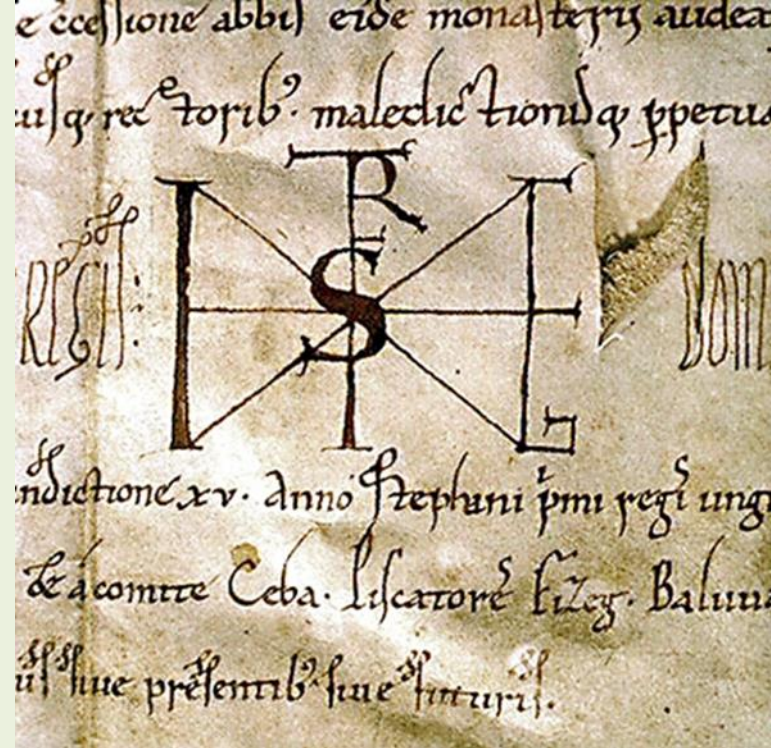 e ccessione abbis eide monasterii audea
usq; rectorib9. maledictionisq; ppetua
REGIS: dom
ndictione xv. Anno Stephani pmi regis ung
de a comite Ceba. Piscatores Fizeg. Baluu
sive presentib9. sive futuris.